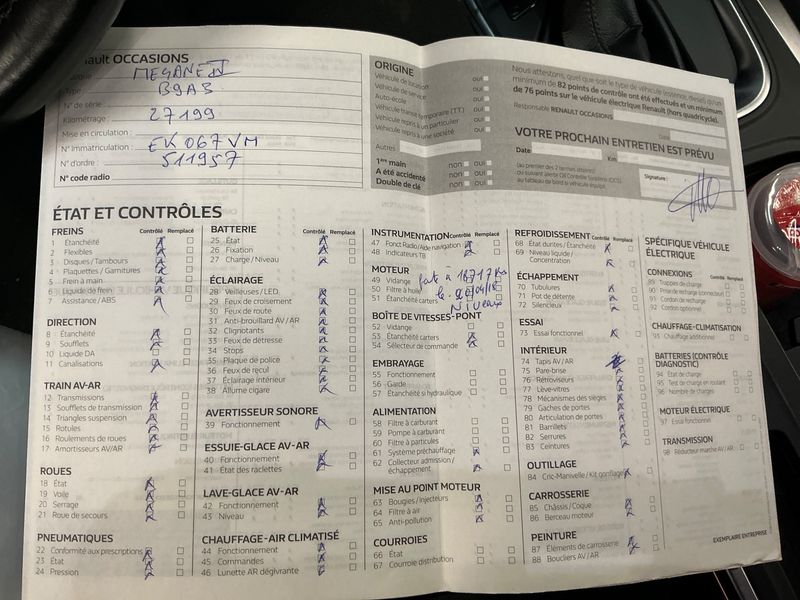 nault OCCASIONS
MEGANE IV
Type B9A3
N° de série :
Kilométrage : 27199
Mise en circulation :
N° Immatriculation : EK 067 VM
N° d'ordre : 511957
N° code radio
ORIGINE
Véhicule de location oui
Véhicule de service oui
Auto-école oui
Véhicule transit temporaire (TT) oui
Véhicule repris à un particulier oui
Véhicule repris à une société oui
Autres
1ère main non oui
A été accidenté non oui
Double de clé non oui
Nous attestons, quel que soit le type de véhicule (essence, diesel) qu'un
minimum de 82 points de contrôle ont été effectués et un minimum
de 76 points sur le véhicule électrique Renault (hors quadricycle).
Responsable RENAULT OCCASIONS
Date
VOTRE PROCHAIN ENTRETIEN EST PRÉVU
Date Km
(au premier des 2 termes atteints)
ou suivant alerte Oil Contrôle Système (OCS)
au tableau de bord si véhicule équipé.
Signature :
ÉTAT ET CONTRÔLES
FREINS Contrôlé Remplacé
1 Étanchéité
2 Flexibles
3 Disques / Tambours
4 Plaquettes / Garnitures
5 Frein à main
6 Liquide de frein
7 Assistance / ABS
DIRECTION
8 Étanchéité
9 Soufflets
10 Liquide DA
11 Canalisations
TRAIN AV-AR
12 Transmissions
13 Soufflets de transmission
14 Triangles suspension
15 Rotules
16 Roulements de roues
17 Amortisseurs AV/AR
ROUES
18 État
19 Voile
20 Serrage
21 Roue de secours
PNEUMATIQUES
22 Conformité aux prescriptions
23 État
24 Pression
BATTERIE Contrôlé Remplacé
25 État
26 Fixation
27 Charge / Niveau
ÉCLAIRAGE
28 Veilleuses / LED
29 Feux de croisement
30 Feux de route
31 Anti-brouillard AV / AR
32 Clignotants
33 Feux de détresse
34 Stops
35 Plaque de police
36 Feux de reçul
37 Éclairage intérieur
38 Allume cigare
AVERTISSEUR SONORE
39 Fonctionnement
ESSUIE-GLACE AV-AR
40 Fonctionnement
41 État des raclettes
LAVE-GLACE AV-AR
42 Fonctionnement
43 Niveau
CHAUFFAGE-AIR CLIMATISÉ
44 Fonctionnement
45 Commandes
46 Lunette AR dégivrante
INSTRUMENTATION Contrôlé Remplacé
47 Fonct Radio / Aide navigation
48 Indicateurs TB
MOTEUR
49 Vidange
50 Filtre à huile
51 Étanchéité carters
fait à 18717 Km
le
Niveaux
BOÎTE DE VITESSES-PONT
52 Vidange
53 Étanchéité carters
54 Sélecteur de commande
EMBRAYAGE
55 Fonctionnement
56 Garde
57 Étanchéité si hydraulique
ALIMENTATION
58 Filtre à carburant
59 Pompe à carburant
60 Filtre à particules
61 Système préchauffage
62 Collecteur admission /
échappement
MISE AU POINT MOTEUR
63 Bougies / Injecteurs
64 Filtre à air
65 Anti-pollution
COURROIES
66 État
67 Courroie distribution
REFROIDISSEMENT Contrôlé Remplacé
68 État durites / Étanchéité
69 Niveau liquide /
Concentration
ÉCHAPPEMENT
70 Tubulures
71 Pot de détente
72 Silencieux
ESSAI
73 Essai fonctionnel
INTÉRIEUR
74 Tapis AV / AR
75 Pare-brise
76 Rétroviseurs
77 Lève-vitres
78 Mécanismes des sièges
79 Gaches de portes
80 Articulation de portes
81 Barillets
82 Serrures
83 Ceintures
OUTILLAGE
84 Cric-Manivelle / Kit gonflage
CARROSSERIE
85 Châssis / Coque
86 Berceau moteur
PEINTURE
87 Éléments de carrosserie
88 Boucliers AV / AR
SPÉCIFICITÉ VÉHICULE
ÉLECTRIQUE
CONNEXIONS Contrôlé Remplacé
89 Trappes de charge
90 Prise de recharge (connecteur)
91 Cordon de recharge
92 Cordon optionnel
CHAUFFAGE-CLIMATISATION
93 Chauffage additionnel
BATTERIES (CONTRÔLE
DIAGNOSTIC)
94 État de charge
95 Test de charge en roulant
96 Nombre de charges
MOTEUR ÉLECTRIQUE
97 Essai fonctionnel
TRANSMISSION
98 Réducteur marche AV / AR
EXEMPLAIRE ENTREPRISE